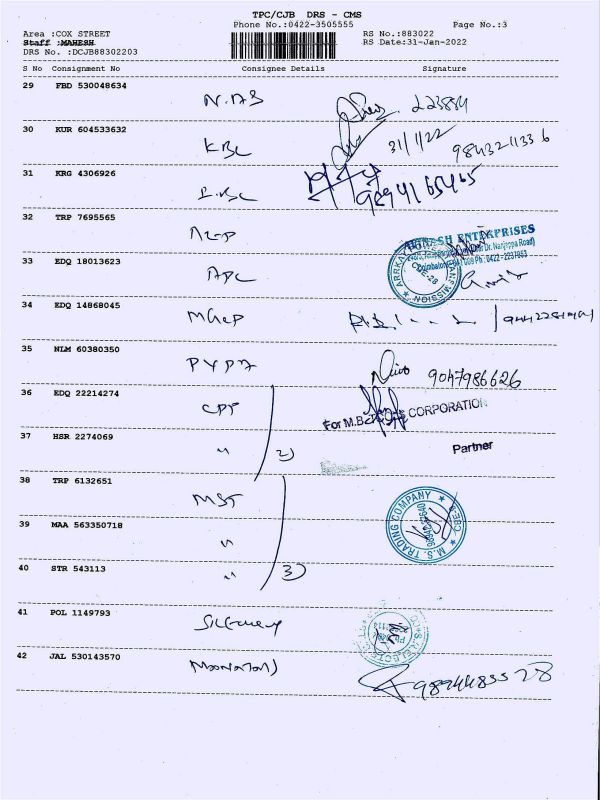 TPC/CJB DRS - CMS
Phone No.:0422-3505555 Page No.:3
Area :COX STREET RS No.:883022
Staff :MAHESH RS Date:31-Jan-2022
DRS No. :DCJB88302203
S No Consignment No Consignee Details Signature
29 FBD 530048634
N.AS 223884
30 KUR 604533632
KBL 31/1/22 9843211336
31 KRG 4306926
9894165465
32 TRP 7695565
ENTERPRISES
Nanjappa Road)
33 EDQ 18013623
APL
34 EDQ 14868045
35 NLM 60380350
PYPA 9047986626
36 EDQ 22214274
CPT
For M.B. CORPORATION
37 HSR 2274069
" 2)
Partner
38 TRP 6132651
MST
M.S. TRADING COMPANY
39 MAA 563350718
"
40 STR 543113
" 3)
41 POL 1149793
42 JAL 530143570
9894483528